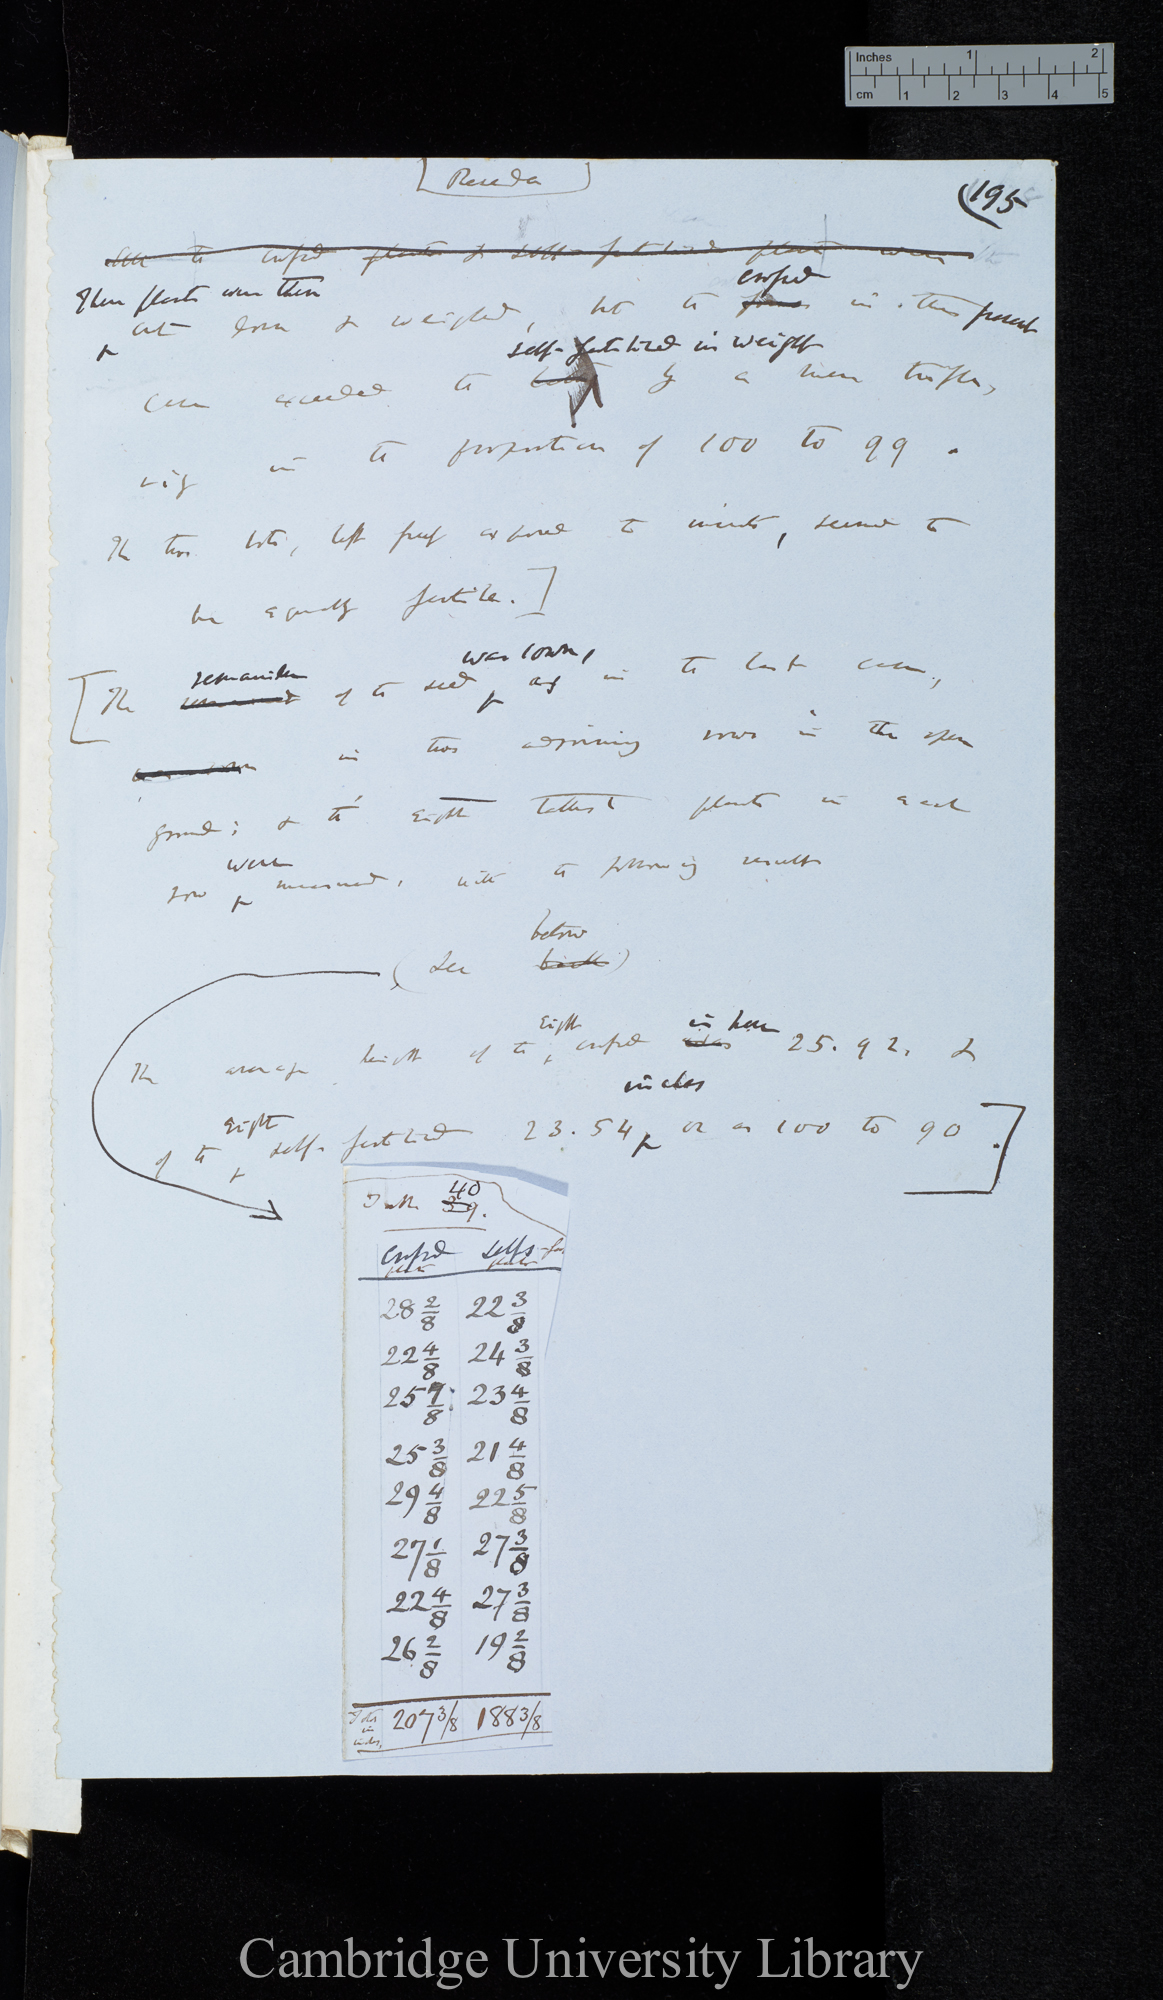 Inches 1 2
cm 1 2 3 4 5
Reseda
195
All the crossed plants & self-fertilised plants were
These plants were then crossed
cut down & weighed, but the in this present
self-fertilised in weight
case exceeded the by a mere trifle,
viz in the proportion of 100 to 99.
The two lots, left freely exposed to insects, seemed to
be equally fertile.]
remainder was sown,
[The of the seed as in the last case,
in two adjoining rows in the open
ground; & the eight tallest plants in each
were
row measured, with the following results
below
(See back)
eight is here
The average height of the crossed was 25.92, &
inches
eight
of the self-fertilised 23.54 or as 100 to 90.]
40
Table 39.
Crossed Selfs-fer
plants plants
28 2/8 22 3/8
22 4/8 24 3/8
25 7/8 23 4/8
25 3/8 21 4/8
29 4/8 22 5/8
27 1/8 27 3/8
22 4/8 27 3/8
26 2/8 19 2/8
Total in inches, 207 3/8 188 3/8
Cambridge University Library